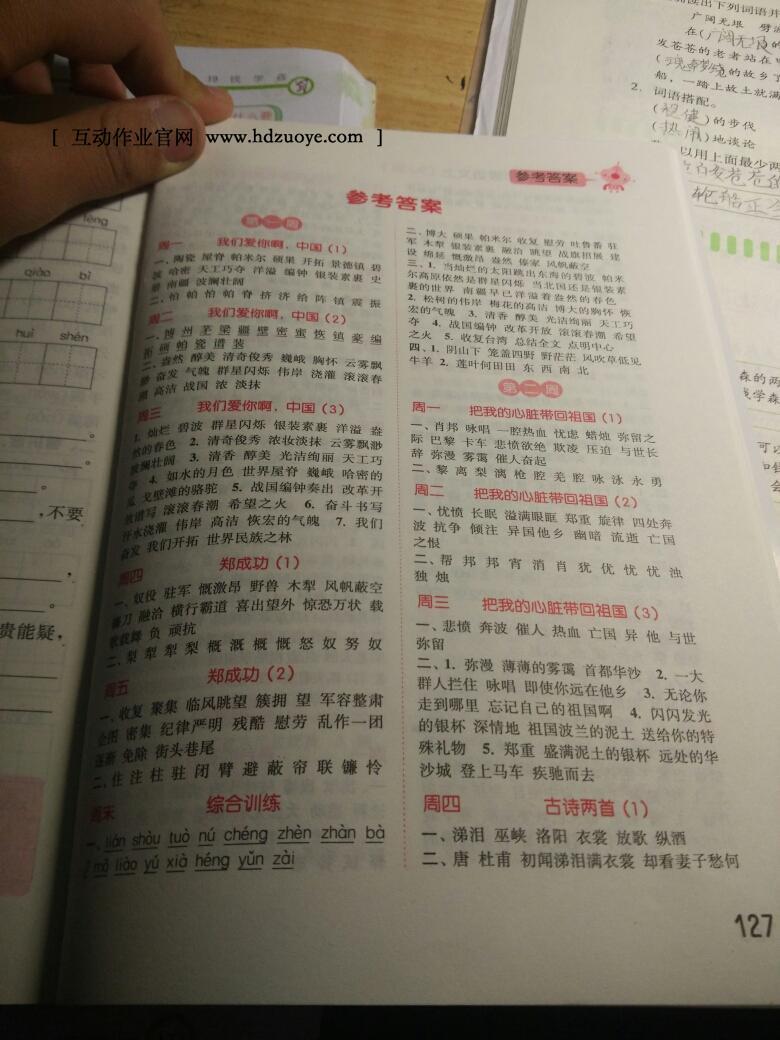 [ 互动作业官网 www.hdzuoye.com ]
参考答案
参考答案
第一周
周一 我们爱你啊，中国（1）
一、陶瓷 屋脊 帕米尔 硕果 开拓 景德镇 碧
波 哈密 天工巧夺 洋溢 编钟 银装素裹 史
册 南疆 波澜壮阔
二、怕 帕 怕 帕 脊 挤 济 给 陈 镇 震 振
周二 我们爱你啊，中国（2）
一、博 州 茅 梁 疆 壁 密 蜜 恢 镇 豪 编
拓 硕 帕 瓷 谱 装
二、盎然 醇美 清奇俊秀 巍峨 胸怀 云雾飘
渺 奋发 气魄 群星闪烁 伟岸 浇灌 滚滚春
潮 高洁 战国 浓 淡抹
周三 我们爱你啊，中国（3）
1. 灿烂 碧波 群星闪烁 银装素裹 洋溢 盎
然的春色 2. 清奇俊秀 浓妆淡抹 云雾飘渺
波澜壮阔 3. 清香 醇美 光洁绚丽 天工巧
夺 4. 如水的月色 世界屋脊 巍峨 哈密的
瓜 戈壁滩的骆驼 5. 战国编钟奏出 改革开
放谱写 滚滚春潮 希望之火 6. 奋斗书写
汗水浇灌 伟岸 高洁 恢宏的气魄 7. 我们
奋发 我们开拓 世界民族之林
周四 郑成功（1）
一、奴役 驻军 慨激昂 野兽 木犁 风帆蔽空
镰刀 融洽 横行霸道 喜出望外 惊恐万状 载
歌载舞 负 顽抗
二、梨 犁 犁 梨 概 溉 概 慨 怒 奴 努 奴
周五 郑成功（2）
一、收复 聚集 临风眺望 簇拥 望 军容整肃
企图 密集 纪律严明 残酷 慰劳 乱作一团
逐渐 免除 街头巷尾
二、住 注 柱 驻 闭 臂 避 蔽 帘 联 镰 怜
周末 综合训练
一、lián shòu tuò nú chéng zhèn zhàn bà
mò liáo yú xià héng yǔn zài
二、博大 硕果 帕米尔 收复 慰劳 吐鲁番 驻
军 木犁 银装素裹 融洽 眺望 战旗招展 建
设 绵延 慨激昂 盎然 傣家 风帆蔽空
三、1. 当灿烂的太阳跳出东海的碧波 帕米
尔高原依然是群星闪烁 当北国还是银装素
裹的世界 南疆早已洋溢着盎然的春色
2. 松树的伟岸 梅花的高洁 博大的胸怀 恢
宏的气魄 3. 清香 醇美 光洁绚丽 天工巧
夺 4. 战国编钟 改革开放 滚滚春潮 希望
之火 5. 收复台湾 总结全文 点明中心
四、1. 阴山下 笼盖四野 野茫茫 风吹草低见
牛羊 2. 莲叶何田田 东 西 南 北
第二周
周一 把我的心脏带回祖国（1）
一、肖邦 咏唱 一腔热血 忧虑 蜡烛 弥留之
际 巴黎 卡车 悲愤欲绝 欺凌 压迫 与世长
辞 弥漫 雾霭 催人奋起
二、黎 离 梨 漓 枪 腔 羌 腔 咏 泳 永 勇
周二 把我的心脏带回祖国（2）
一、忧愤 长眠 溢满眼眶 郑重 旋律 四处奔
波 抗争 倾注 异国他乡 幽暗 流逝 亡国
之恨
二、帮 邦 邦 宵 消 肖 犹 优 忧 忧 浊
独 烛
周三 把我的心脏带回祖国（3）
一、悲愤 奔波 催人 热血 亡国 异 他 与世
弥留
二、1. 弥漫 薄薄的雾霭 首都华沙 2. 一大
群人拦住 咏唱 即使你远在他乡 3. 无论你
走到哪里 忘记自己的祖国啊 4. 闪闪发光
的银杯 深情地 祖国波兰的泥土 送给你的特
殊礼物 5. 郑重 盛满泥土的银杯 远处的华
沙城 登上马车 疾驰而去
周四 古诗两首（1）
一、涕泪 巫峡 洛阳 衣裳 放歌 纵酒
二、唐 杜甫 初闻涕泪满衣裳 却看妻子愁何
127
téng
qiào bì
huì shén
，不要
贵能疑，
读出下列词语并
广阔无垠
在（广阔无垠）的
发苍苍的老者站在
（魂牵梦绕）的故乡
船，一踏上故土就满
2. 词语搭配。
（稳健）的步伐
（热闹）地谈论
以用上面最少两
森的两
可以